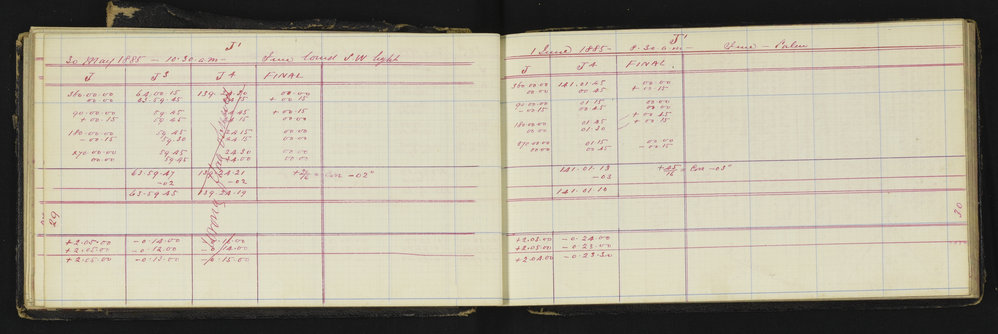 J'
30 May 1885 - 10.30 a.m - Fine S.W light
J J3 J4 FINAL
360.00.00 64.00.15 139. 24.30 00.00
00.00 63.59.45 + 00.15
90.00.00 59.45 24.45 + 00.15
+ 00.15 59.45 24.15 00.00
180.00.00 59.45 24.15 00.00
- 00.15 59.30 24.15 00.00
270.00.00 59.45 24.30 00.00
00.00 59.45 24.00 00.00
63.59.47 139.24.21 = Cor -02"
-02 -02
63.59.45 139.24.19
29
+2.05.00 -0.14.00
+2.05.00 -0.12.00 -0.14.00
+2.05.00 -0.13.00 -0.15.00
J'
1 June 1885 - 8.30 a.m - Fine -
J J4 FINAL.
360.00.00 141.01.45 00.00
00.00 00.45 + 00.15
90.00.00 01.15 00.00
- 00.15 00.45 00.00
180.00.00 01.45 + 00.15
00.00 01.30 + 00.15
270.00.00 01.15 00.00
00.00 00.45 - 00.15
141.01.13 +45/16 = Cor -03"
-03
141.01.10
30
+2.03.00 -0.24.00
+2.05.00 -0.23.00
+2.04.00 -0.23.30